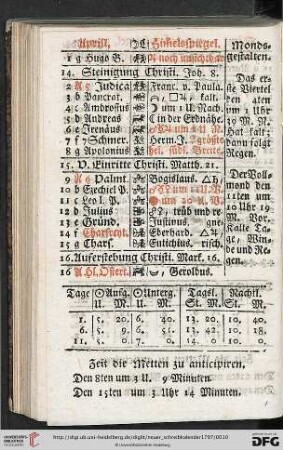 Aprill. Himmelsspiegel. Monds-
gestalten.
1 g Hugo B. noch unsichtbar
14. Steinigung Christi. Joh. 8.
2 A 5 Judica Franc. v. Paula.
3 b Pancrat. kalt.
4 c Ambrosius um 1 U. Nach.
5 d Andreas in der Erdnähe.
6 e Irenäus um 2 U. N.
7 f 7 Schmer. Herm. J. größte
8 g Apolonius hel. südl. Breit.
Das er-
ste Viertel
den 4ten
um 1 Uhr
39 M. N.
Hat kalt;
dann folgt
Regen.
15. V. Einritte Christi. Matth. 21.
9 A 6 Palmt. Bogislaus.
10 b Ezechiel P. um 2 U. V.
11 c Leo I. P. um 20 U. V.
12 d Julius trüb und re-
13 e Gründ. Justinus gne
14 f Charfreyt. Eberhard.
15 g Chars. Eutichius. risch.
Der Voll-
mond den
11ten um
10 Uhr 19
M. Vor.
Kalte Ta-
ge, Win-
de und Re-
gen.
16. Auferstehung Christi. Mark. 16.
16 A Hl. Ostert. Gerolbus.
Tage Aufg. Unterg. Tagsl. Nachtl.
U. M. U. M. St. M. St. M.
1. 5. 20. 6. 40. 13. 20. 10. 40.
6. 5. 9. 6. 51. 13. 42. 10. 18.
11. 5. 0. 7. 0. 14. 0 10. 0.
Zeit die Metten zu anticipiren.
Den 8ten um 3 U. 9 Minuten.
Den 15ten um 3 Uhr 14 Minuten.
http://digi.ub.uni-heidelberg.de/diglit/neuer_schreibkalender1797/0010
© Universitätsbibliothek Heidelberg
UNIVERSITÄTS-
BIBLIOTHEK
HEIDELBERG
gefördert durch die
DFG